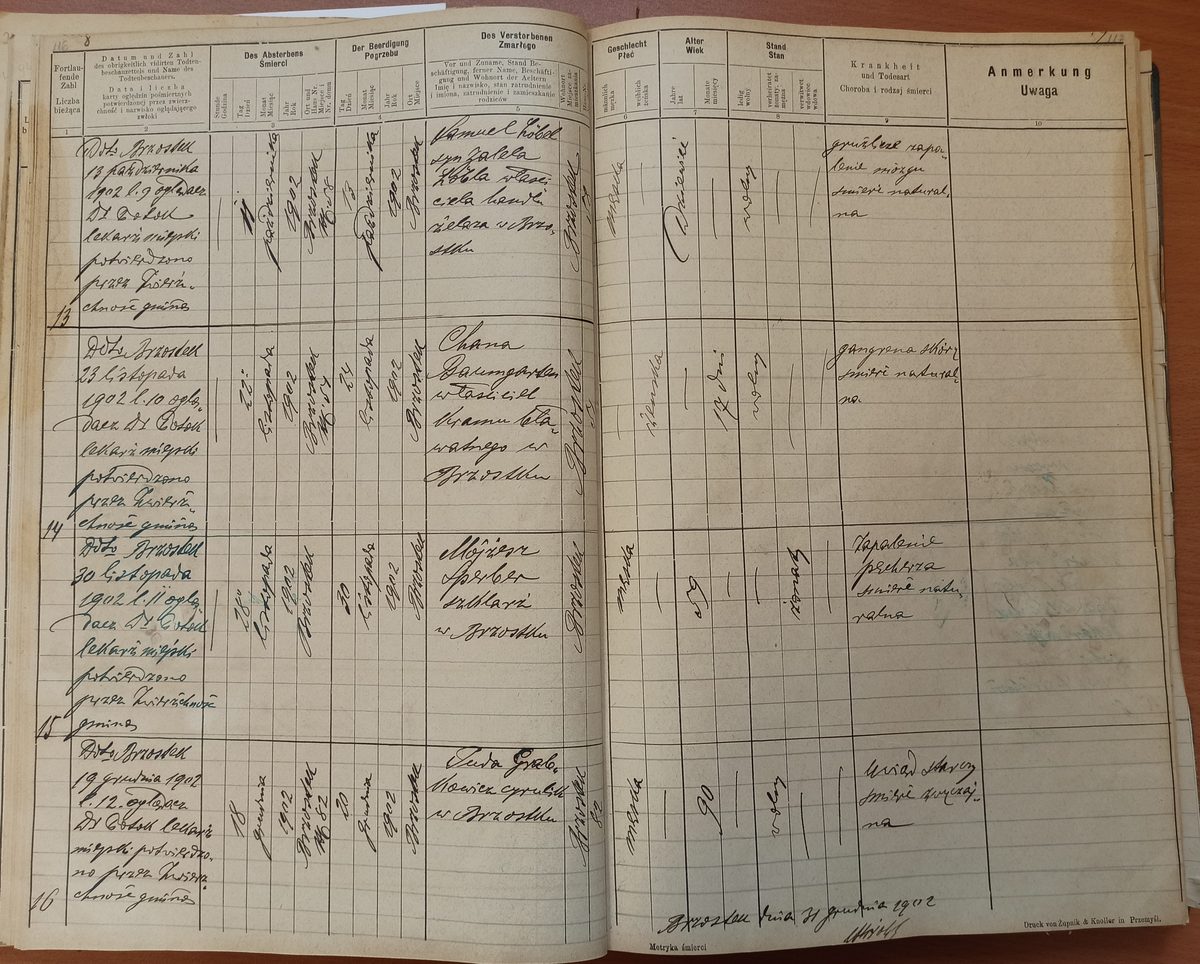 8
Fortlaufende Zahl
Liczba bieżąca
Datum und Zahl
des obrigkeitlich vidirten Todtenbeschauzettels und Name des Todtenbeschauers.
Data i liczba
karty oględzin pośmiertnych potwierdzonej przez zwierzchność i nazwisko oglądającego zwłoki
Des Absterbens
Śmierci
Stunde Godzina
Tag dzień
Monat Miesiąc
Jahr Rok
Ort und Haus Nr. Miejsce i Nr. domu
Der Beerdigung
Pogrzebu
Tag Dzień
Monat Miesiąc
Jahr Rok
Ort Miejsce
Des Verstorbenen
Zmarłego
Vor und Zuname, Stand Beschäftigung, ferner Name, Beschäftigung und Wohnort der Aeltern
Imię i nazwisko, stan zatrudnienie i imiona, zatrudnienie i zamieszkanie rodziców
Geschlecht
Płeć
männlich męska
weiblich żeńska
Alter
Wiek
Jahre lat
Monate miesięcy
Stand
Stan
ledig wolny
verheiratet
verwitwet
Krankheit
und Todesart
Choroba i rodzaj śmierci
Anmerkung
Uwaga
1 2 3 4 5 6 7 8 9 10
13
Dto Brzostek
13 października
1902 l. 9 oglądacz
Dr
lekarz miejski
potwierdzono
przez Zwierz-
chność gminną
11
października
1902
Brzostek
13
października
1902
Brzostek
Samuel Zobel
syn
Zobla właści
ciela handlu
żelaza w Brzo-
stku
Brzostek
męska
wolny
gruźlicze zapa-
lenie mózgu
śmierć natural-
na
14
Dto Brzostek
23 listopada
1902 l. 10 oglą-
dacz Dr
lekarz miejski
potwierdzono
przez Zwierz-
chność gminną
22
listopada
1902
Brzostek
24
listopada
1902
Brzostek
Chana
Baumgarten
właściciel
kramu bła-
watnego w
Brzostku
Brzostek
żeńska
17 dni
wolny
gangrena skóry
śmierć natural-
na
15
Dto Brzostek
30 listopada
1902 l. 11 oglą-
dacz Dr
lekarz miejski
potwierdzono
przez Zwierzchność
gminną
28
listopada
1902
Brzostek
30
listopada
1902
Brzostek
Mojżesz
Sperber
szklarz
w Brzostku
Brzostek
męska
59
żonaty
Zapalenie
pęcherza
śmierć natu-
ralna
16
Dto Brzostek
19 grudnia 1902
l. 12. oglądacz
Dr lekarz
miejski potwierdzo-
no przez Zwierz-
chność gminną
18
grudnia
1902
Brzostek
N 82
20
grudnia
1902
Brzostek
Juda Grab-
kowicz cyrulik
w Brzostku
Brzostek
82
męska
90
wolny
Uwiąd starczy
śmierć zwyczaj-
na
Brzostek dnia 31 grudnia 1902
Metryka śmierci
Druck von Żupnik & Knoller in Przemyśl.